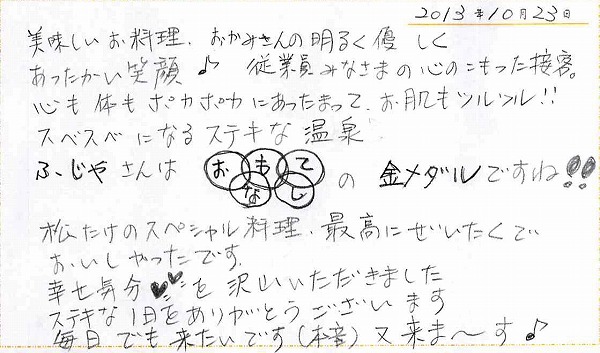 2013年10月23日
美味しいお料理、おかみさんの明るく優しく
あったかい笑顔♪ 従業員みなさまの心のこもった接客。
心も体もポカポカにあったまって、お肌もツルツル!!
スベスベになるステキな温泉
ふじやさんは おもてなし の 金メダルですね!!
松たけのスペシャル料理、最高にぜいたくで
おいしかったです。
幸せ気分♥♥を沢山いただきました
ステキな1日をありがとうございます
毎日でも来たいです(本音)又来ま〜す♪